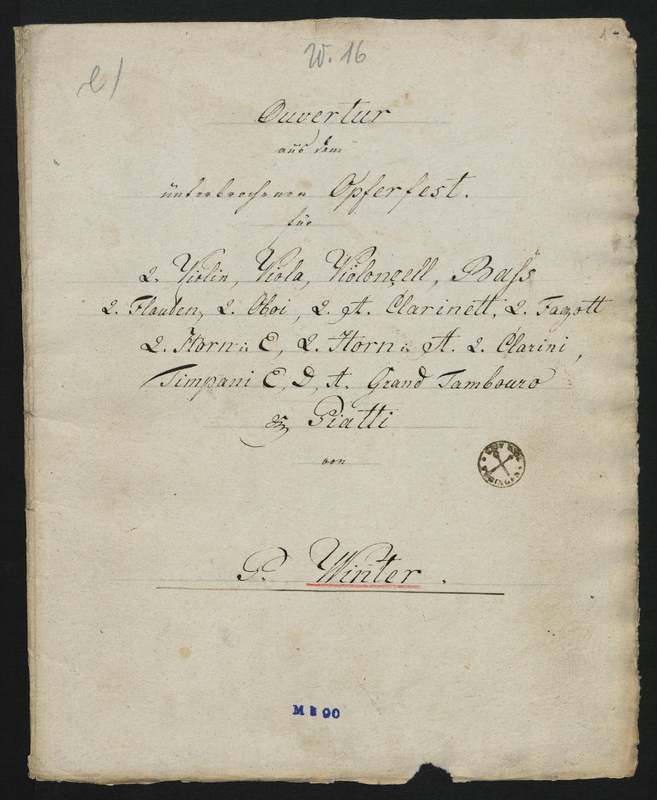 1
e)
W. 16
Ouvertur
aus dem
unterbrochenen Opferfest.
für
2. Violin, Viola, Violoncell, Bass
2. Flauden, 2. Oboi, 2. A. Clarinett, 2. Fagott
2. Horn in E, 2. Horn in A. 2. Clarini,
Timpani E, D, A. Grand Tambouro
& Piatti
von
P. Winter.
M 2 90